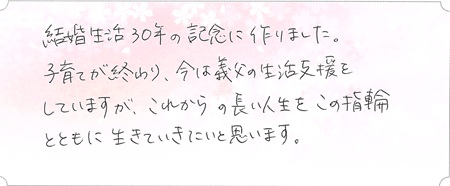 結婚生活30年の記念に作りました。
子育てが終わり、今は義父の生活支援を
していますが、これからの長い人生をこの指輪
とともに生きていきたいと思います。